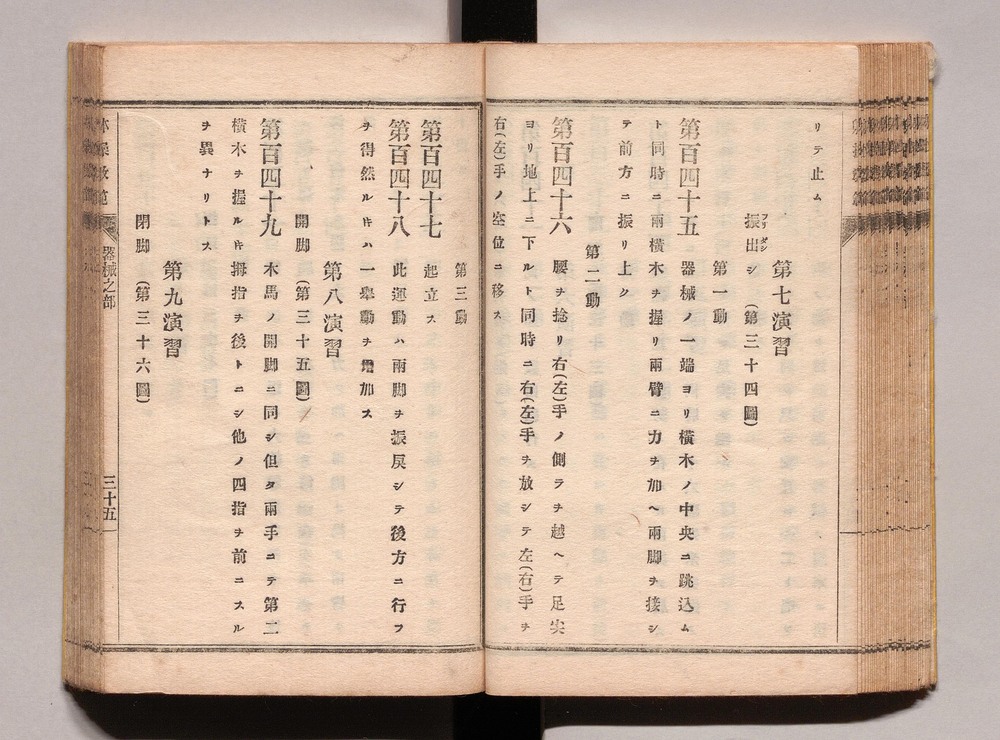 リテ止ム
第七演習
振出シ (第三十四圖)
第一動
第百四十五 器械ノ一端ヨリ橫木ノ中央ニ跳込ム
ト同時ニ兩橫木ヲ握リ兩臂ニ力ヲ加ヘ兩脚ヲ接シ
テ前方ニ振リ上ク
第二動
第百四十六 腰ヲ捻リ右(左)手ノ側ラヲ越ヘテ足尖
ヨリ地上ニ下ルト同時ニ右(左)手ヲ放シテ左(右)手ヲ
右(左)手ノ位ニ移ス
第三動
第百四十七 起立ス
第百四十八 此運動ハ兩脚ヲ振戾シテ後方ニ行フ
ヲ得然ル𪜈ハ一擧動ヲ增加ス
第八演習
開脚 (第三十五圖)
第百四十九 木馬ノ開脚ニ同シ但タ兩手ニテ第二
橫木ヲ握ル𪜈拇指ヲ後トニシ他ノ四指ヲ前ニスル
ヲ異ナリトス
第九演習
閉脚 (第三十六圖)
器械之部
三十五